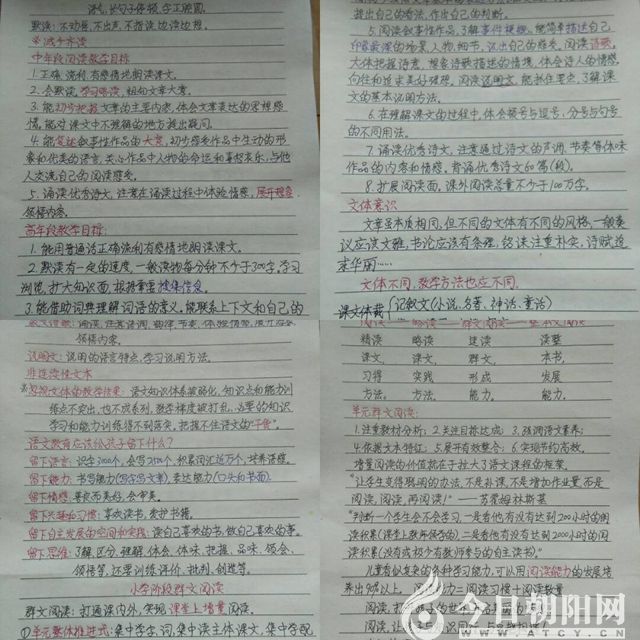 读，长句子停顿，字正腔圆。
默读：不动唇，不出声，不指读，边读边想。
减少齐读
中年段阅读教学目标
1.正确、流利、有感情地朗读课文。
2.会默读，学习略读，粗知文章大意。
3.能初步把握文章的主要内容，体会文章表达的思想感
情。能对课文中不理解的地方提出疑问。
4.能复述叙事性作品的大意，初步感受作品中生动的形
象和优美的语言，关心作品中人物的命运和喜怒哀乐，与他
人交流自己的阅读感受。
5.诵读优秀诗文，注意在诵读过程中体验情感，展开想象，
领悟内容。
高年段教学目标：
1.能用普通话正确流利有感情地朗读课文。
2.默读有一定的速度，一般读物每分钟不少于300字。学习
浏览，扩大知识面，根据需要搜集信息
3.能借助词典理解词语的意义。能联系上下文和自己的
领悟内容。
说明文：说明的语言特点，学习说明方法。
非连续性文本
忽视文体的教学结果：语文知识体系被弱化，知识点和能力训
练点不突出，也不成系列，教学梯度被打乱，必要的知识
学习和能力训练得不到落实。把握不住语文的“干货”。
语文教育应该给孩子留下什么？
留下语言：识字3000个，会写2500个，积累词汇近万个，培养语感。
留下能力：书写能力（写字写文章）表达能力（口头和书面）。
留下情感：善良而美好，会审美。
留下兴趣和习惯：喜欢读书，爱护书籍。
留下自主发展的空间和实践：读自己喜欢的书，做自己喜欢的事。
留下思维：了解、区分、理解、体会、体味、把握、品味、领会、
领悟等，还要训练评价、批判、创造等。
小学阶段群文阅读
群文阅读：打通课内外，实现课堂上增量阅读。
①单元整体推进式：集中学字、词，集中读主体课文，集中学配
提出自己的看法，作出自己的判断。
5.阅读叙事性作品，了解事件梗概，能简单描述自己
印象最深的场景、人物、细节，说出自己的感受。阅读诗歌，
大体把握诗意，想象诗歌描述的情境，体会诗人的情感，
向往和追求美好理想。阅读说明文，能抓住要点，了解课
文的基本说明方法。
6.在理解课文的过程中，体会顿号与逗号、分号与句号
的不同用法。
7.诵读优秀诗文，注意通过诗文的声调、节奏等体味
作品的内容和情感，背诵优秀诗文60篇（段）。
8.扩展阅读面，课外阅读总量不少于100万字。
文体意识
文章虽本质相同，但不同的文体有不同的风格，一般奏
议应该文雅，书论应该有条理，铭诔注重朴实，诗赋追
求华丽……
文体不同，教学方法也应不同。
课文体裁（记叙文（小说、名著、神话、童话）
精读 略读 连读 读整
课文， 课文， 群文， 本书，
习得 实践 形成 发展
方法。 方法。 能力。 能力。
单元群文阅读：
1.注重教材分析；2.关注目标达成；3.强调语文素养；
4.依据文本特征；5.展开有效整合；6.实现节约高效。
增量阅读的价值就在于扩大了语文课程的框架。
“让学生变得聪明的办法，不是补课，不是增加作业量，而是
阅读、阅读、再阅读！”——苏霍姆林斯基
“判断一个学生会不会学习，一是看他有没有达到200小时的阅
读积累（课堂上教师给予的）二是看他有没有达到2000小时的阅
读积累（没有或极少有教师参与的自主读书）。”
儿童有似发来的各种学习能力，可以用阅读能力的发展培
养出
今日朝阳网
WWW.ATCY.CN